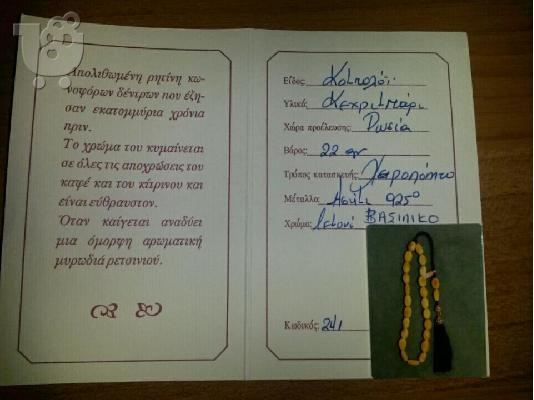 Απολιθωμένη ρητίνη κω-
νοφόρων δέντρων που έζη-
σαν εκατομμύρια χρόνια
πριν.
Το χρώμα του κυμαίνεται
σε όλες τις αποχρώσεις του
καφέ και του κίτρινου και
είναι εύθραυστον.
Όταν καίγεται αναδύει
μια όμορφη αρωματική
μυρωδιά ρετσινιού.
Είδος: Κομπολόι
Υλικό: Κεχριμπάρι
Χώρα προέλευσης: Ρωσία
Βάρος: 22 gr
Τρόπος κατασκευής: Χειροποίητο
Μέταλλα Ασήμι 925°
Χρώμα: ΒΑΣΙΛΙΚΟ
Κωδικός: 241